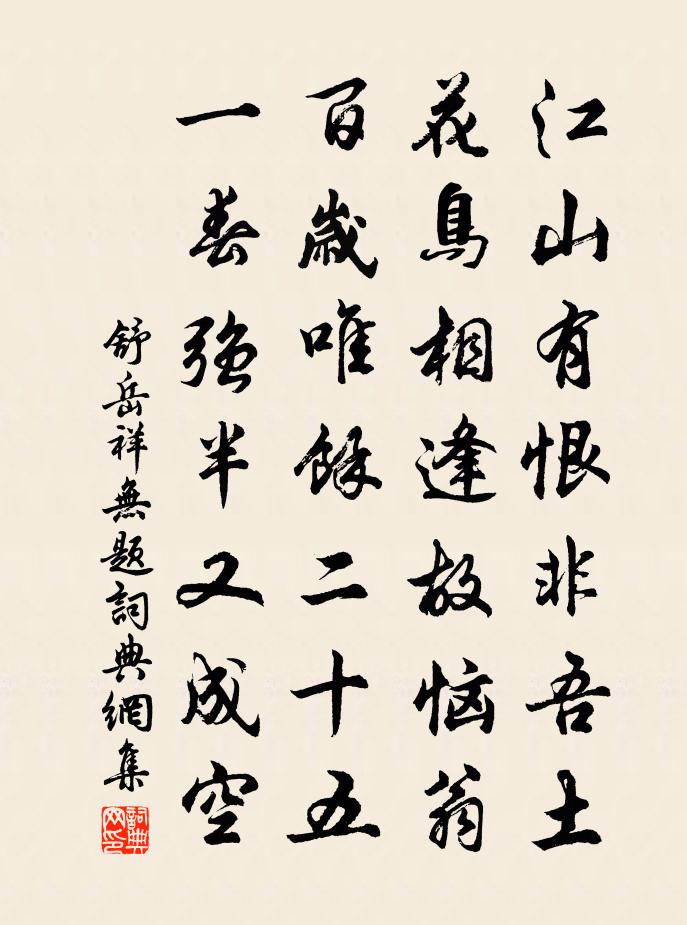 江山有恨非吾土
花鳥相逢故恼翁
百歳唯餘二十五
一春強半又成空
舒岳祥無题詞典網集
詞典
网印